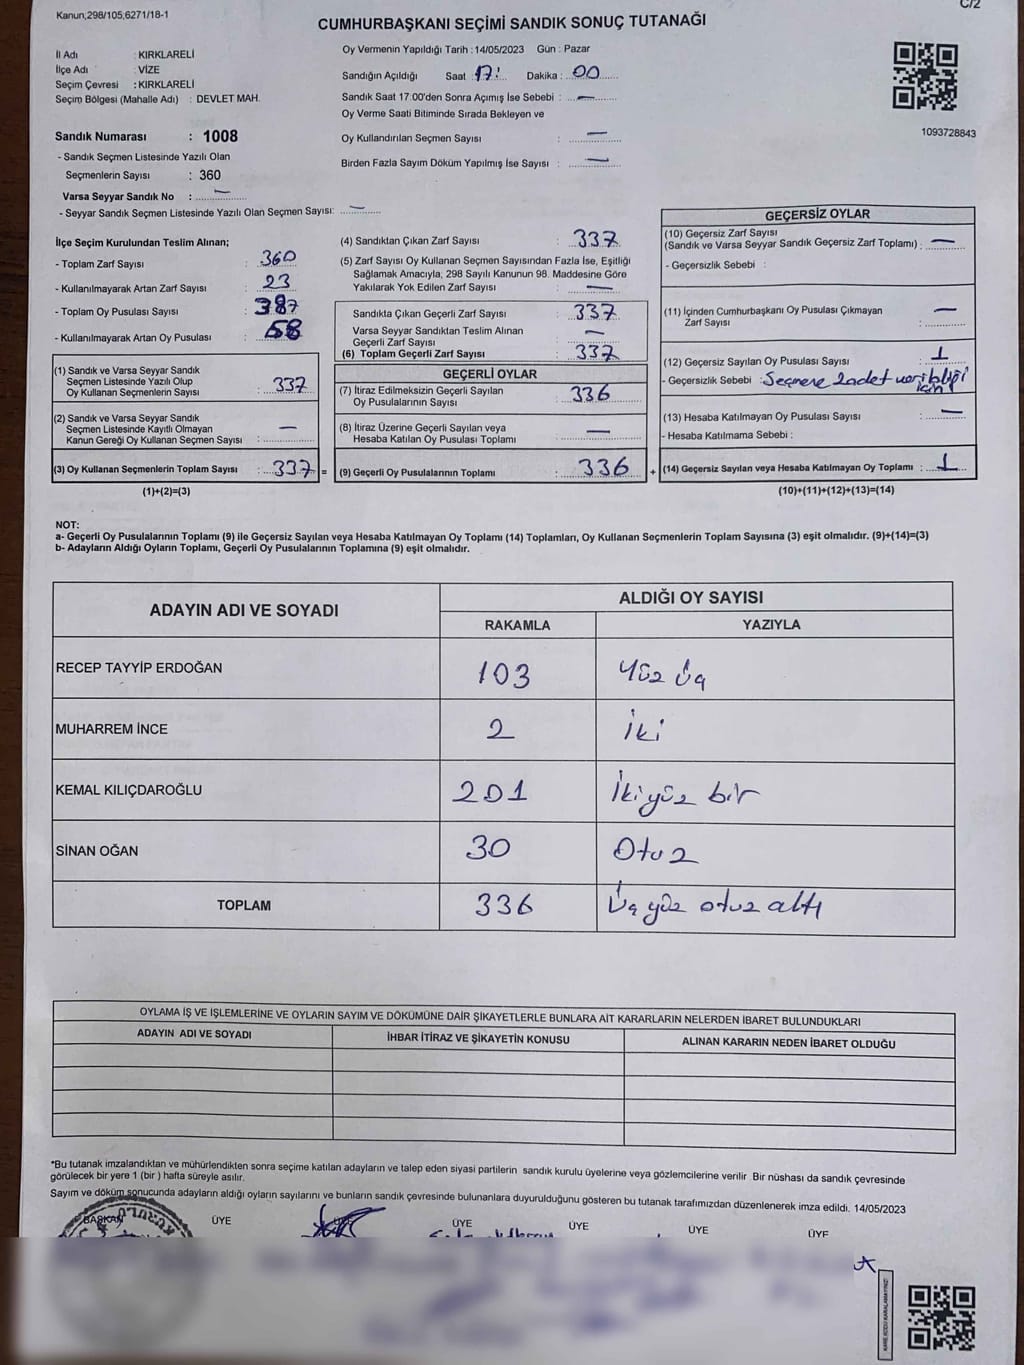 Kanun;298/105;6271/18-1
C/2
CUMHURBAŞKANI SEÇİMİ SANDIK SONUÇ TUTANAĞI
İl Adı : KIRKLARELİ
İlçe Adı : VİZE
Seçim Çevresi : KIRKLARELİ
Seçim Bölgesi (Mahalle Adı) : DEVLET MAH.
Oy Vermenin Yapıldığı Tarih : 14/05/2023 Gün : Pazar
Sandığın Açıldığı Saat : 17: Dakika : 00
Sandık Saat 17:00'den Sonra Açımış İse Sebebi : —
Oy Verme Saati Bitiminde Sırada Bekleyen ve
Oy Kullandırılan Seçmen Sayısı : —
Birden Fazla Sayım Döküm Yapılmış İse Sayısı : —
1093728843
Sandık Numarası : 1008
- Sandık Seçmen Listesinde Yazılı Olan
Seçmenlerin Sayısı : 360
Varsa Seyyar Sandık No : —
- Seyyar Sandık Seçmen Listesinde Yazılı Olan Seçmen Sayısı: —
İlçe Seçim Kurulundan Teslim Alınan;
- Toplam Zarf Sayısı : 360
- Kullanılmayarak Artan Zarf Sayısı : 23
- Toplam Oy Pusulası Sayısı : 387
- Kullanılmayarak Artan Oy Pusulası :
(1) Sandık ve Varsa Seyyar Sandık
Seçmen Listesinde Yazılı Olup
Oy Kullanan Seçmenlerin Sayısı : 337
(2) Sandık ve Varsa Seyyar Sandık
Seçmen Listesinde Kayıtlı Olmayan
Kanun Gereği Oy Kullanan Seçmen Sayısı : —
(3) Oy Kullanan Seçmenlerin Toplam Sayısı : 337 =
(1)+(2)=(3)
(4) Sandıktan Çıkan Zarf Sayısı : 337
(5) Zarf Sayısı Oy Kullanan Seçmen Sayısından Fazla İse, Eşitliği
Sağlamak Amacıyla; 298 Sayılı Kanunun 98. Maddesine Göre
Yakılarak Yok Edilen Zarf Sayısı : —
Sandıkta Çıkan Geçerli Zarf Sayısı : 337
Varsa Seyyar Sandıktan Teslim Alınan
Geçerli Zarf Sayısı : —
(6) Toplam Geçerli Zarf Sayısı : 337
GEÇERLİ OYLAR
(7) İtiraz Edilmeksizin Geçerli Sayılan
Oy Pusulalarının Sayısı : 336
(8) İtiraz Üzerine Geçerli Sayılan veya
Hesaba Katılan Oy Pusulası Toplamı : —
(9) Geçerli Oy Pusulalarının Toplamı : 336 +
GEÇERSİZ OYLAR
(10) Geçersiz Zarf Sayısı
(Sandık ve Varsa Seyyar Sandık Geçersiz Zarf Toplamı) : —
- Geçersizlik Sebebi :
(11) İçinden Cumhurbaşkanı Oy Pusulası Çıkmayan
Zarf Sayısı : —
(12) Geçersiz Sayılan Oy Pusulası Sayısı : 1
- Geçersizlik Sebebi : Seçmene 2adet verildiği
için
(13) Hesaba Katılmayan Oy Pusulası Sayısı : —
- Hesaba Katılmama Sebebi :
(14) Geçersiz Sayılan veya Hesaba Katılmayan Oy Toplamı : 1
(10)+(11)+(12)+(13)=(14)
NOT:
a- Geçerli Oy Pusulalarının Toplamı (9) ile Geçersiz Sayılan veya Hesaba Katılmayan Oy Toplamı (14) Toplamları, Oy Kullanan Seçmenlerin Toplam Sayısına (3) eşit olmalıdır. (9)+(14)=(3)
b- Adayların Aldığı Oyların Toplamı, Geçerli Oy Pusulalarının Toplamına (9) eşit olmalıdır.
ADAYIN ADI VE SOYADI
ALDIĞI OY SAYISI
RAKAMLA YAZIYLA
RECEP TAYYİP ERDOĞAN 103 Yüz üç
MUHARREM İNCE 2 İki
KEMAL KILIÇDAROĞLU 201 İkiyüz bir
SİNAN OĞAN 30 Otuz
TOPLAM 336 Üç yüz otuz altı
OYLAMA İŞ VE İŞLEMLERİNE VE OYLARIN SAYIM VE DÖKÜMÜNE DAİR ŞİKAYETLERLE BUNLARA AİT KARARLARIN NELERDEN İBARET BULUNDUKLARI
ADAYIN ADI VE SOYADI İHBAR İTİRAZ VE ŞİKAYETİN KONUSU ALINAN KARARIN NEDEN İBARET OLDUĞU
*Bu tutanak imzalandıktan ve mühürlendikten sonra seçime katılan adayların ve talep eden siyasi partilerin sandık kurulu üyelerine veya gözlemcilerine verilir Bir nüshası da sandık çevresinde
görülecek bir yere 1 (bir ) hafta süreyle asılır.
Sayım ve döküm sonucunda adayların aldığı oyların sayılarını ve bunların sandık çevresinde bulunanlara duyurulduğunu gösteren bu tutanak tarafımızdan düzenlenerek imza edildi. 14/05/2023
BAŞKAN ÜYE ÜYE ÜYE ÜYE ÜYE
KARE KODU KARALAMAYINIZ!